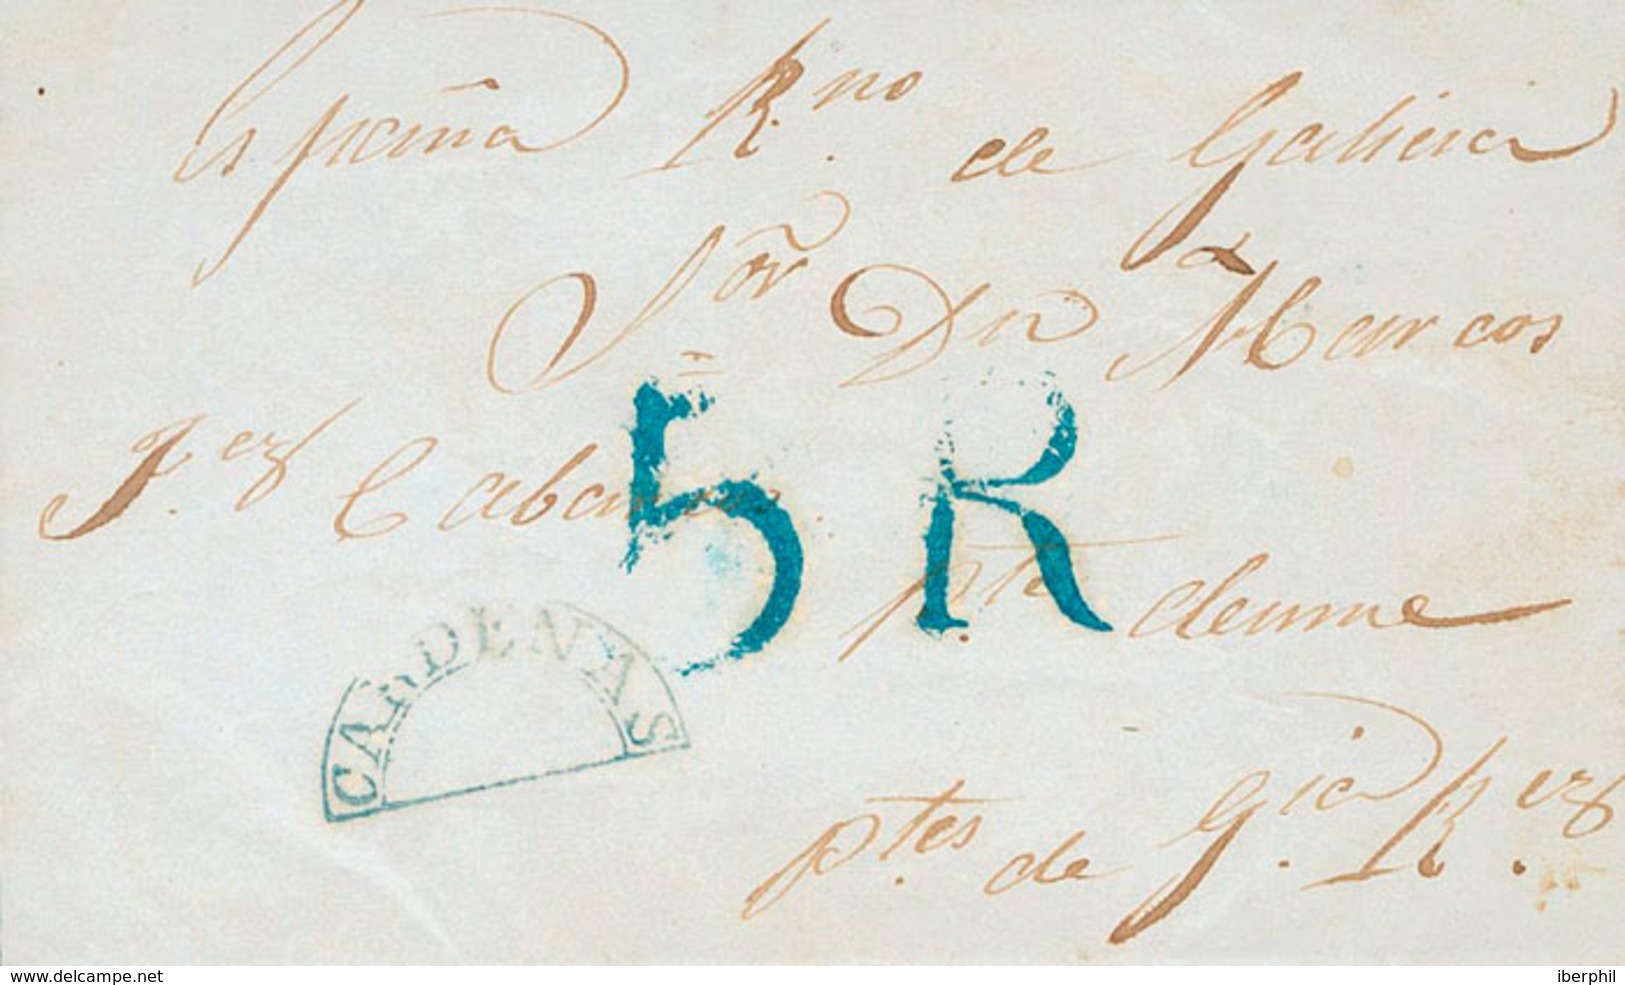 España R.no de Galicia
Sor̃ Dn Marcos
F.ez Cabanas.
5 R
p.te deume
CARDENAS
p.tes de G.ia R.ez
www.delcampe.net
iberphil